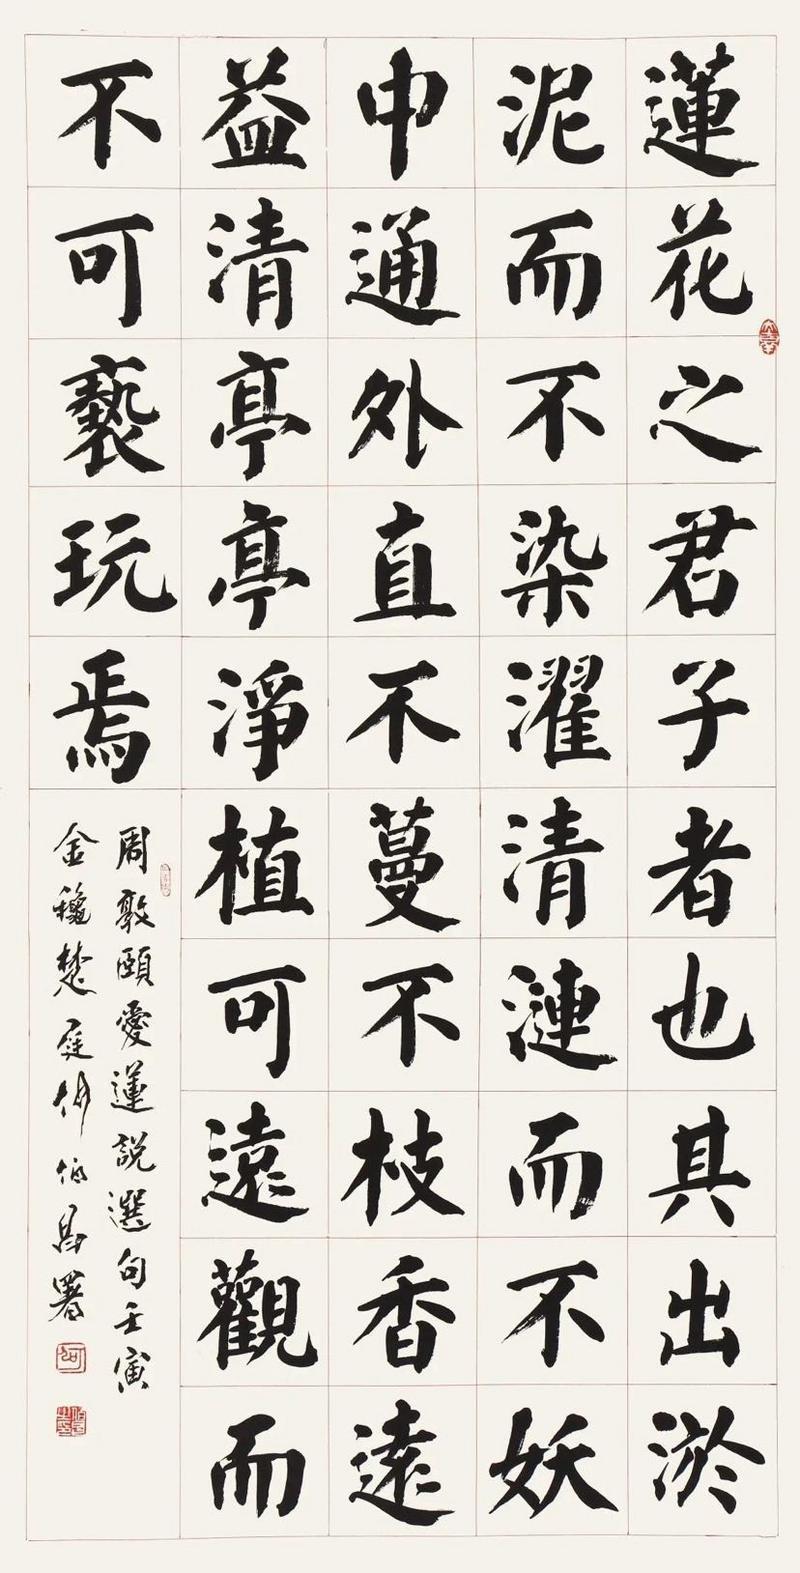 蓮花之君子者也其出淤
泥而不染濯清漣而不妖
中通外直不蔓不枝香遠
益清亭亭淨植可遠觀而
不可褻玩焉
周敦頤愛蓮說選句壬寅
金龝楚庭何伯昌署